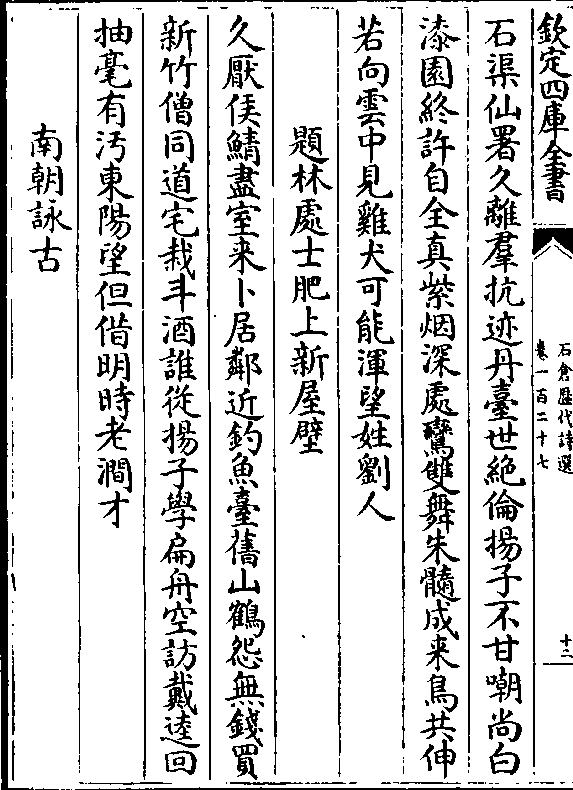 欽定四庫全書
石倉歷代詩選
卷一百二十七
十二
石渠仙署久離羣抗迹丹臺世絶倫揚子不甘嘲尚白
漆園終許自全真紫烟深處鸞雙舞朱髓成来鳥共伸
若向雲中見雞犬可能渾望姓劉人
題林處士肥上新屋壁
久厭侯鯖盡室来卜居鄰近釣魚臺舊山鶴怨無錢買
新竹僧同道宅栽斗酒誰從揚子學扁舟空訪戴逵回
抽毫有汚東陽望但偕明時老澗才
南朝詠古